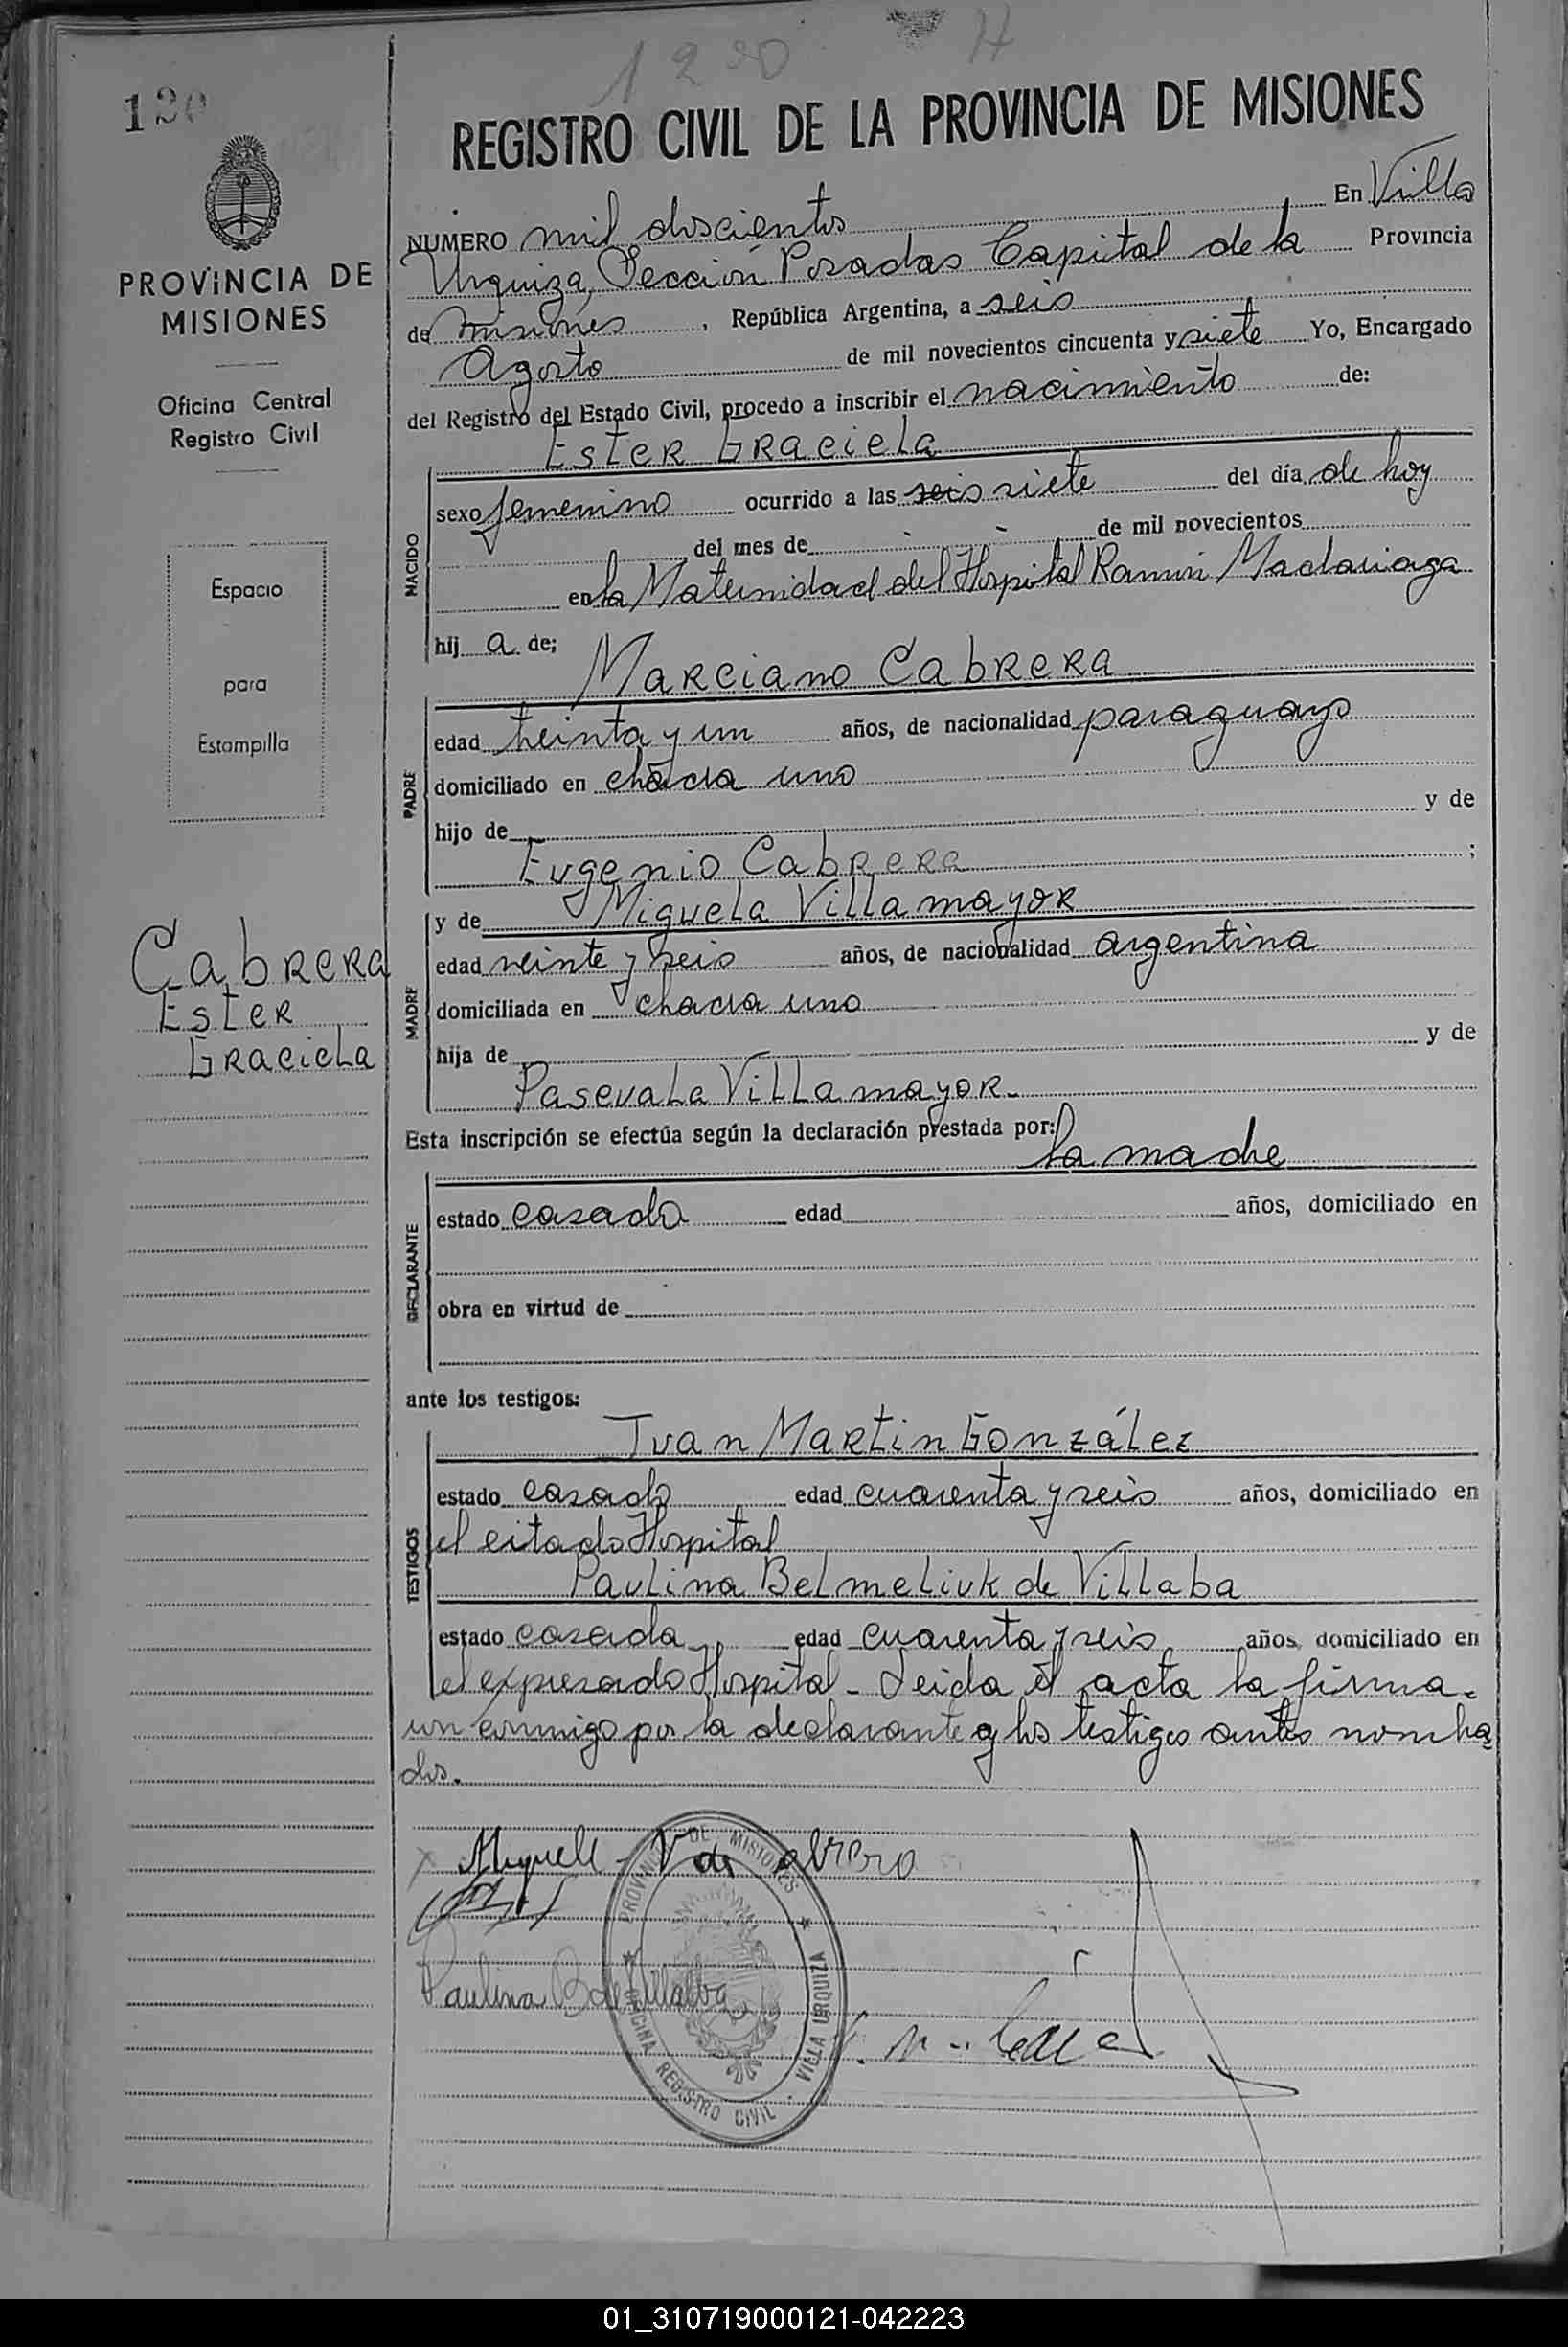 1290 H
120
REGISTRO CIVIL DE LA PROVINCIA DE MISIONES
PROVINCIA DE
MISIONES
Oficina Central
Registro Civil
Espacio
para
Estampilla
Cabrera
Ester
Graciela
NUMERO mil doscientos En Villa
Urquiza, Sección Posadas Capital de la Provincia
de misiones, República Argentina, a seis
Agosto de mil novecientos cincuenta y siete Yo, Encargado
del Registro del Estado Civil, procedo a inscribir el nacimiento de:
Ester Graciela
NACIDO
sexo femenino ocurrido a las seis siete del día de hoy
del mes de de mil novecientos
en la Maternidad del Hospital Ramón Madariaga
hij a de;
Marciano Cabrera
PADRE
edad treinta y un años, de nacionalidad paraguayo
domiciliado en chacra uno
hijo de y de
Eugenio Cabrera ;
y de Miguela Villamayor
MADRE
edad veinte y seis años, de nacionalidad argentina
domiciliada en chacra uno
hija de y de
Pascuala Villamayor.
Esta inscripción se efectúa según la declaración prestada por:
la madre
DECLARANTE
estado casada edad años, domiciliado en
obra en virtud de
ante los testigos:
Juan Martin González
TESTIGOS
estado casado edad cuarenta y seis años, domiciliado en
el citado Hospital
Paulina Belmeliuk de Villaba
estado casada edad cuarenta y seis años, domiciliado en
el expresado Hospital - Leida el acta la firma
conmigo por la declarante y los testigos antes nombra
dos.
x Miguela V de Cabrera
Paulina B de Villalba
PROVINCIA DE MISIONES
OFICINA REGISTRO CIVIL - VILLA URQUIZA
01_310719000121-042223